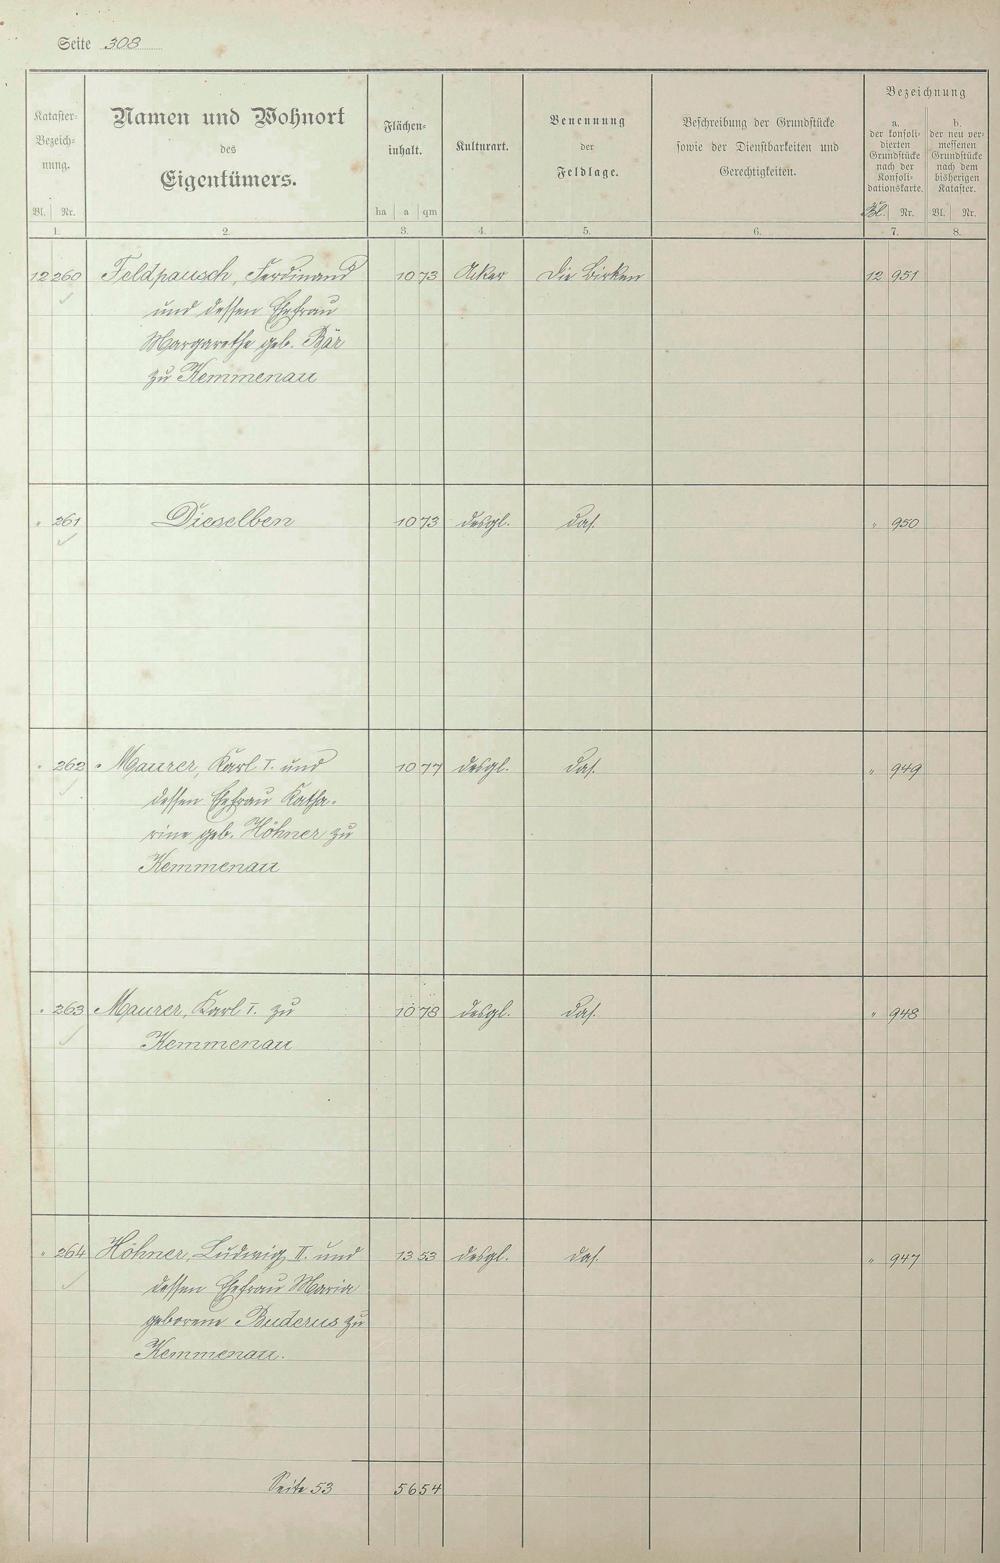 Seite 308
Kataster-
Bezeich-
nung.
Bl. Nr.
Namen und Wohnort
des
Eigentümers.
Flächen-
inhalt.
ha a qm
Kulturart.
Benennung
der
Feldlage.
Beschreibung der Grundstücke
sowie der Dienstbarkeiten und
Gerechtigkeiten.
Bezeichnung
a.
der konsoli-
dierten
Grundstücke
nach der
Konsoli-
dationskarte.
Bl. Nr.
b.
der neu ver-
messenen
Grundstücke
nach dem
bisherigen
Kataster.
Bl. Nr.
1. 2. 3. 4. 5. 6. 7. 8.
12 260 Feldpausch, Ferdinand 10 73 Acker Die Birken 12 951
und dessen Ehefrau
Margarethe geb. Bär
zu Kemmenau
" 261 Dieselben 10 73 desgl. das. " 950
" 262 Maurer, Karl I. und 10 77 desgl. das. " 949
dessen Ehefrau Katha-
rine geb. Höhner zu
Kemmenau
" 263 Maurer, Karl I. zu 10 78 desgl. das. " 948
Kemmenau
" 264 Höhner, Ludwig II. und 13 53 desgl. das. " 947
dessen Ehefrau Maria
geborene Buderus zu
Kemmenau.
Seite 53 56 54